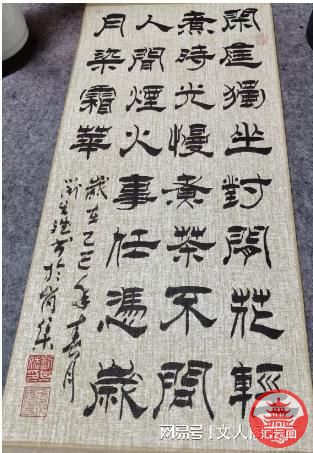 閑庭獨坐對閒花輕
煮時光慢煮茶不問
人間煙火事任憑歲
月染霜華
歲在乙巳年春月
書於
汇云阁
网易号 文人